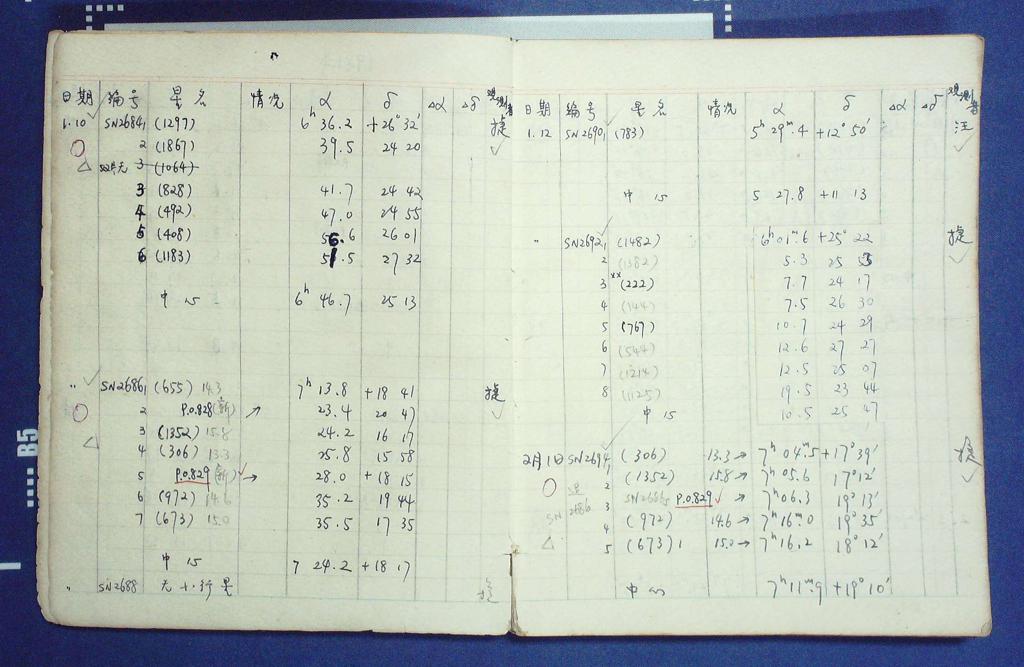 日期 编号 星名 情况 α δ Δα Δδ 观测者
1.10 SN2684 1 (1297) 6h 36.2 +26° 32' 捷
2 (1867) 39.5 24 20
3 (1064)
3 (828) 41.7 24 42
4 (492) 47.0 24 55
5 (408) 56.6 26 01
6 (1183) 51.5 27 32
中心 6h 46.7 25 13
〃 SN2686 1 (655) 14.3 7h 13.8 +18 41 捷
2 P.O.828 (新) → 23.4 20 47
3 (1352) 15.8 24.2 16 17
4 (306) 13.3 25.8 15 58
5 P.O.829 (新) → 28.0 +18 15
6 (972) 14.6 35.2 19 44
7 (673) 15.0 35.5 17 35
中心 7 24.2 +18 17
〃 SN2688 无小行星 捷
日期 编号 星名 情况 α δ Δα Δδ 观测者
1.12 SN2690 1 (783) 5h 29m.4 +12° 50' 汪
中心 5 27.8 +11 13
〃 SN2692 1 (1482) 6h 01m.6 +25° 22 捷
2 (1382) 5.3 25 53
3 xx (222) 7.7 24 17
4 (144) 7.5 26 30
5 (767) 10.7 24 29
6 (544) 12.6 27 27
7 (1214) 12.5 25 07
8 (1125) 19.5 23 44
中心 10.5 25 47
2月1日 SN2694 1 (306) 13.3 → 7h 04m.5 +17° 39' 捷
2 (1352) 15.8 → 7h 05.6 17° 12'
3 SN2686 5 P.O.829 → 7h 06.3 19° 13'
4 (972) 14.6 → 7h 16m.0 19° 35'
5 (673) 15.0 → 7h 16.2 18° 12'
中心 7h 11m.9 +19° 10'
B5